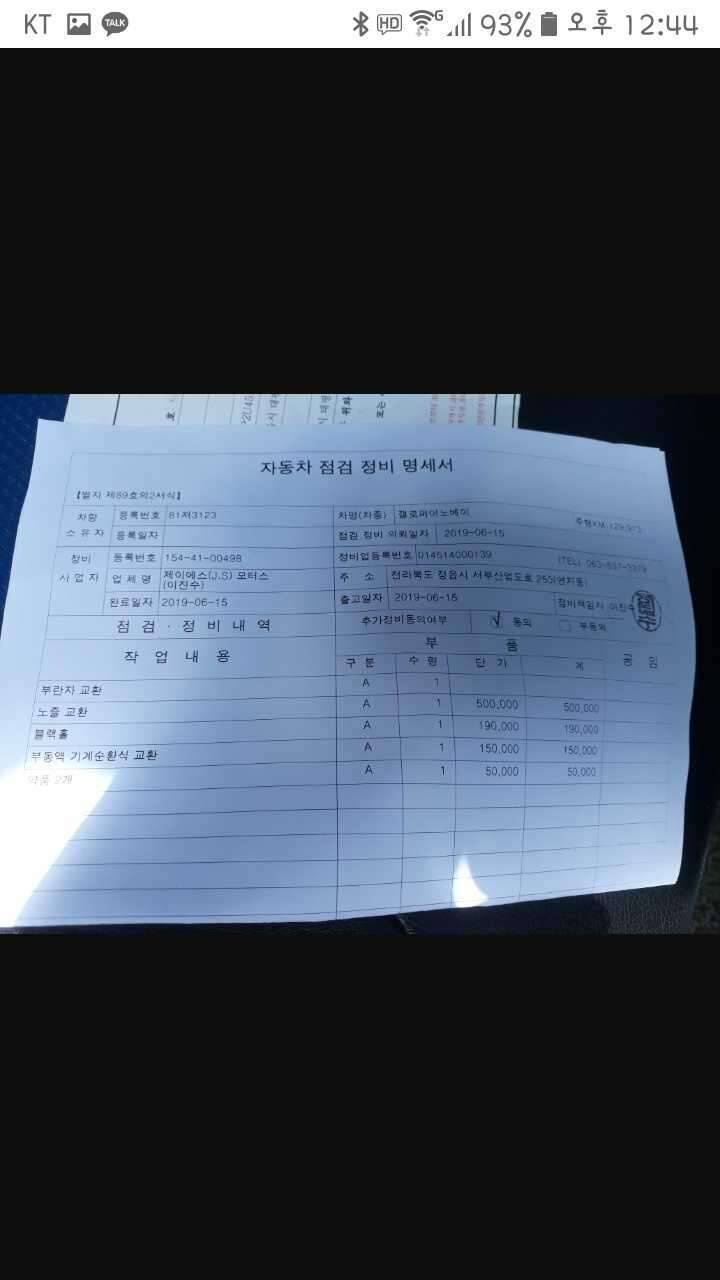 KT TALK HD 93% 오후 12:44
자동차 점검 정비 명세서
【별지 제89호의2서식】
차량 소유자 등록번호 81저3123 차명(차종) 갤로퍼이노베이
등록일자 점검 정비 의뢰일자 2019-06-15
정비 사업자 등록번호 154-41-00498 정비업등록번호 014514000139
업체명 제이에스(J.S) 모터스 주 소 전라북도 정읍시 서부산업도로 255(연지동)
(이진수)
완료일자 2019-06-15 출고일자 2019-06-15 정비책임자 이진수
점 검 · 정 비 내 역 추가정비동의여부 √ 동의 부동의
작 업 내 용 부 품 공 임
구 분 수 량 단 가 계
부란자 교환 A 1
노즐 교환 A 1 500,000 500,000
블랙홀 A 1 190,000 190,000
부동액 기계순환식 교환 A 1 150,000 150,000
약품 2개 A 1 50,000 50,000